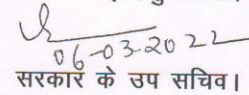 06-03-2022
सरकार के उप सचिव।